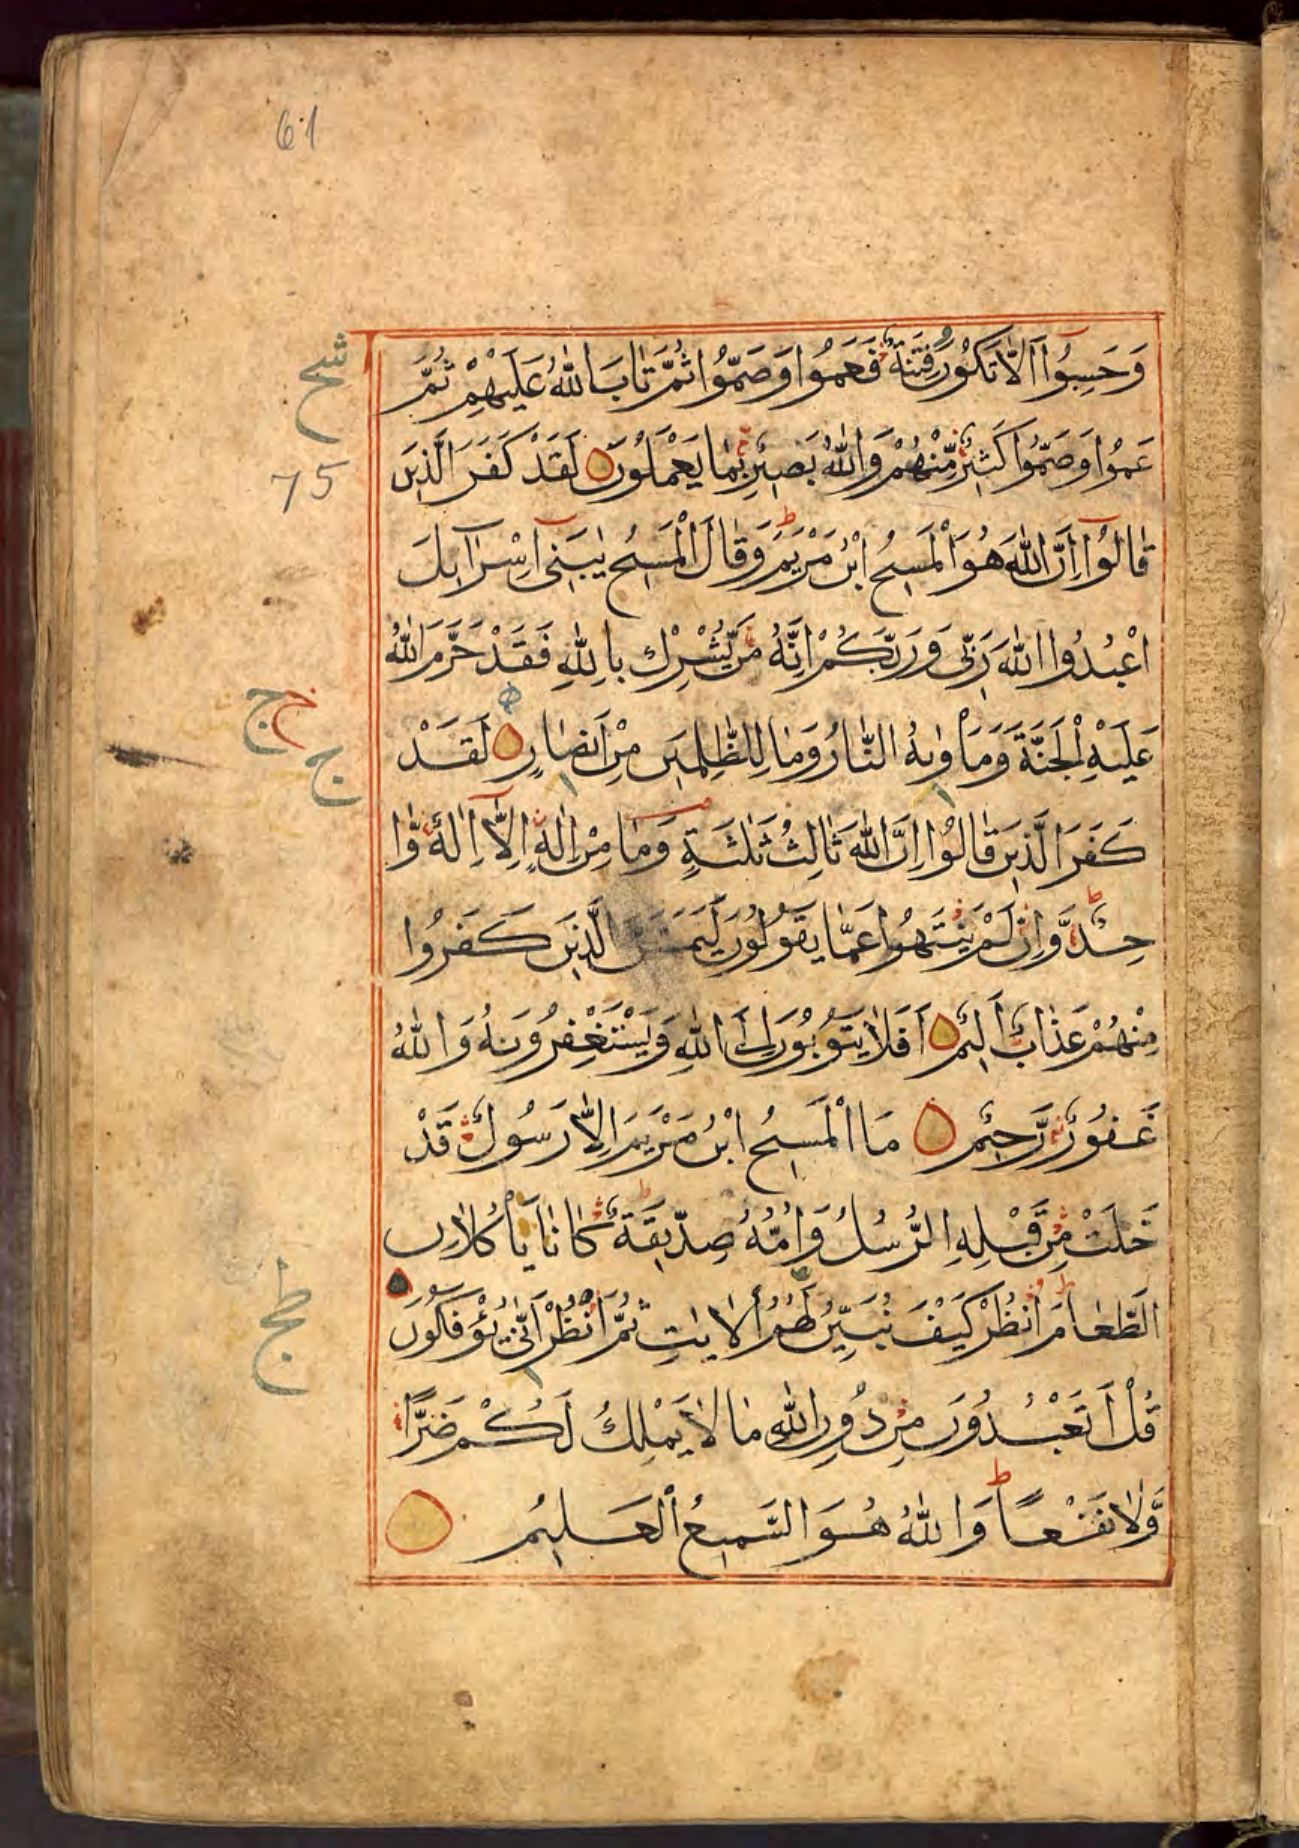 61
وَحَسِبُوا اَلَّا تَكُوْنَ فِتْنَةٌ فَعَمُوا وَصَمُّوا ثُمَّ تَابَ اللّٰهُ عَلَيْهِمْ ثُمَّ
عَمُوا وَصَمُّوا كَثِيْرٌ مِّنْهُمْ وَاللّٰهُ بَصِيْرٌ بِمَا يَعْمَلُوْنَ لَقَدْ كَفَرَ الَّذِيْنَ
قَالُوْا اِنَّ اللّٰهَ هُوَ الْمَسِيْحُ ابْنُ مَرْيَمَ وَقَالَ الْمَسِيْحُ يٰبَنِيْ اِسْرَآئِلَ
اعْبُدُوا اللّٰهَ رَبِّيْ وَرَبَّكُمْ اِنَّهُ مَنْ يُّشْرِكْ بِاللّٰهِ فَقَدْ حَرَّمَ اللّٰهُ
عَلَيْهِ الْجَنَّةَ وَمَأْوٰىهُ النَّارُ وَمَا لِلظّٰلِمِيْنَ مِنْ اَنْصَارٍ لَقَدْ
كَفَرَ الَّذِيْنَ قَالُوْا اِنَّ اللّٰهَ ثَالِثُ ثَلٰثَةٍ وَمَا مِنْ اِلٰهٍ اِلَّا اِلٰهٌ وَّا
حِدٌ وَّاِنْ لَمْ يَنْتَهُوا عَمَّا يَقُوْلُوْنَ لَيَمَسَّنَّ الَّذِيْنَ كَفَرُوا
مِنْهُمْ عَذَابٌ اَلِيْمٌ اَفَلَا يَتُوْبُوْنَ اِلَى اللّٰهِ وَيَسْتَغْفِرُوْنَهُ وَاللّٰهُ
غَفُوْرٌ رَّحِيْمٌ مَا الْمَسِيْحُ ابْنُ مَرْيَمَ اِلَّا رَسُوْلٌ قَدْ
خَلَتْ مِنْ قَبْلِهِ الرُّسُلُ وَاُمُّهُ صِدِّيْقَةٌ كَانَا يَأْكُلَانِ
الطَّعَامَ اُنْظُرْ كَيْفَ نُبَيِّنُ لَهُمُ الْاٰيٰتِ ثُمَّ انْظُرْ اَنّٰى يُؤْفَكُوْنَ
قُلْ اَتَعْبُدُوْنَ مِنْ دُوْنِ اللّٰهِ مَا لَا يَمْلِكُ لَكُمْ ضَرًّا
وَّلَا نَفْعًا وَاللّٰهُ هُوَ السَّمِيْعُ الْعَلِيْمُ
75